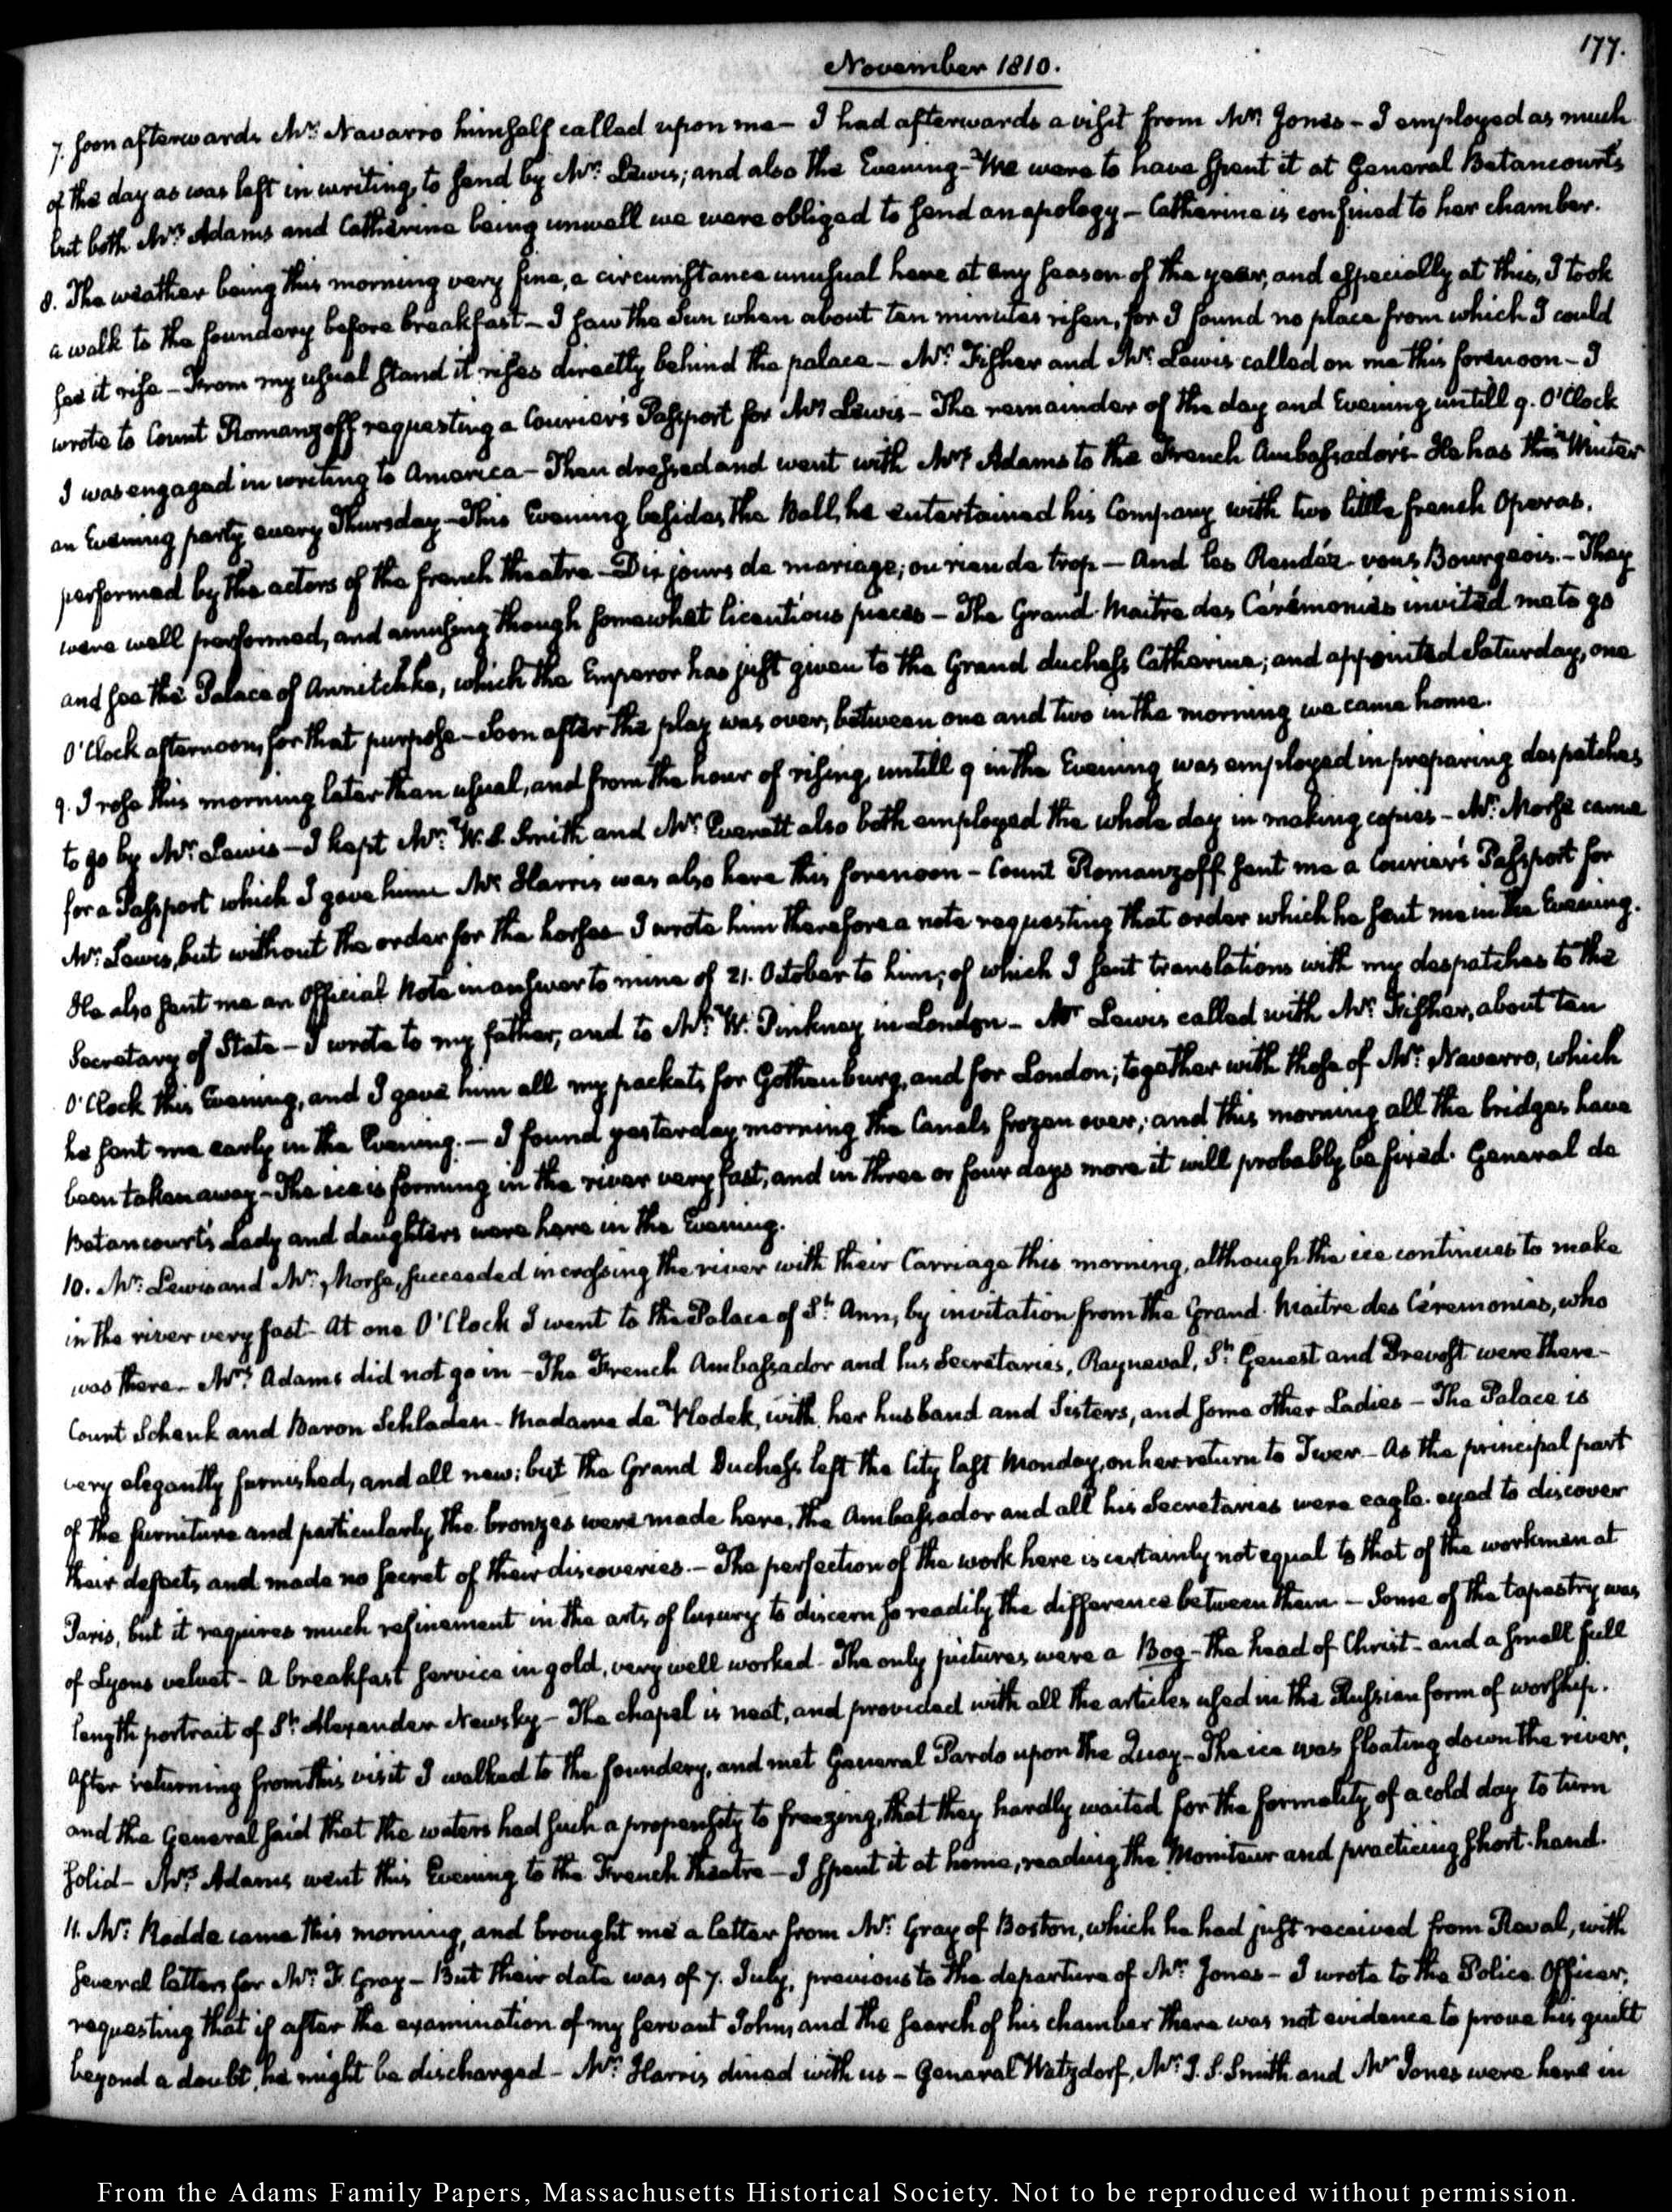 177.
November 1810.
7. Soon afterwards Mr. Navarro himself called upon me – I had afterwards a visit from Mr. Jones – I employed as much
of the day as was left in writing, to send by Mr. Lewis; and also the Evening – We were to have spent it at General Betancourt's
but both Mrs. Adams and Catherine being unwell we were obliged to send an apology – Catherine is confined to her chamber.
8. The weather being this morning very fine, a circumstance unusual here at any season of the year, and especially at this, I took
a walk to the foundery before breakfast – I saw the Sun when about ten minutes risen, for I found no place from which I could
see it rise – From my usual stand it rises directly behind the palace – Mr. Fisher and Mr. Lewis called on me this forenoon – I
wrote to Count Romanzoff requesting a Courier's Passport for Mr. Lewis – The remainder of the day and Evening untill 9. O'Clock
I was engaged in writing to America – Then dressed and went with Mrs. Adams to the French Ambassador's – He has this Winter
an Evening party every Thursday – This Evening besides the Ball, he entertained his Company with two little french Operas,
performed by the actors of the french theatre – Dix jours de mariage; ou rien de trop – And les Rendéz-vous Bourgeois. – They
were well performed, and amusing though somewhat licentious pieces – The Grand-Maitre des Cérémonies invited me to go
and see the Palace of Annitchka, which the Emperor has just given to the Grand duchess Catherine; and appointed Saturday, one
O'Clock afternoon, for that purpose – Soon after the play was over, between one and two in the morning we came home.
9. I rose this morning later than usual, and from the hour of rising, untill 9 in the Evening was employed in preparing despatches
to go by Mr. Lewis – I kept Mr. W. S. Smith and Mr. Everett also both employed the whole day in making copies – Mr. Morse came
for a Passport which I gave him Mr. Harris was also here this forenoon – Count Romanzoff sent me a Courier's Passport for
Mr. Lewis, but without the order for the horses – I wrote him therefore a note requesting that order which he sent me in the Evening.
He also sent me an Official Note in answer to mine of 21. October to him; of which I sent translations with my despatches to the
Secretary of State – I wrote to my father, and to Mr. W. Pinkney in London – Mr. Lewis called with Mr. Fisher, about ten
O'Clock this Evening, and I gave him all my packets for Gothenburg, and for London; together with those of Mr. Navarro, which
he sent me early in the Evening. – I found yesterday morning the Canals frozen over; and this morning all the bridges have
been taken away – The ice is forming in the river very fast, and in three or four days more it will probably be fixed. General de
Betancourt's Lady and daughters were here in the Evening.
10. Mr. Lewis and Mr. Morse, succeeded in crossing the river with their Carriage this morning, although the ice continues to make
in the river very fast – At one O'Clock I went to the Palace of St. Ann, by invitation from the Grand-Maitre des Cérémonies, who
was there – Mrs. Adams did not go in – The French Ambassador and his Secretaries, Rayneval, St. Genest and Prevost were there –
Count Schenk and Baron Schladen – Madame de Wlodek, with her husband and Sisters, and some other Ladies – The Palace is
very elegantly furnished, and all new: but the Grand Duchess left the City last Monday, on her return to Twer – As the principal part
of the furniture and particularly the bronzes were made here, the Ambassador and all his Secretaries were eagle-eyed to discover
their defects, and made no secret of their discoveries. – The perfection of the work here is certainly not equal to that of the workmen at
Paris, but it requires much refinement in the arts of luxury to discern so readily the difference between them – Some of the tapestry was
of Lyons velvet – A breakfast service in gold, very well worked – The only pictures were a Bog – the head of Christ – and a small full
length portrait of St. Alexander Newsky – The chapel is neat, and provided with all the articles used in the Russian form of worship.
After returning from this visit I walked to the foundery, and met General Pardo upon the Quay – The ice was floating down the river,
and the General said that the waters had such a propensity to freezing, that they hardly waited for the formality of a cold day to turn
solid – Mrs. Adams went this Evening to the French theatre – I spent it at home, reading the Moniteur and practicing short-hand.
11. Mr. Rodde came this morning, and brought me a letter from Mr. Gray of Boston, which he had just received from Reval, with
several letters for Mr. F. Gray – But their date was of 7. July, previous to the departure of Mr. Jones – I wrote to the Police Officer,
requesting that if after the examination of my servant John, and the search of his chamber there was not evidence to prove his guilt
beyond a doubt, he might be discharged – Mr. Harris dined with us – General Watzdorf, Mr. J. S. Smith and Mr. Jones were here in
From the Adams Family Papers, Massachusetts Historical Society. Not to be reproduced without permission.